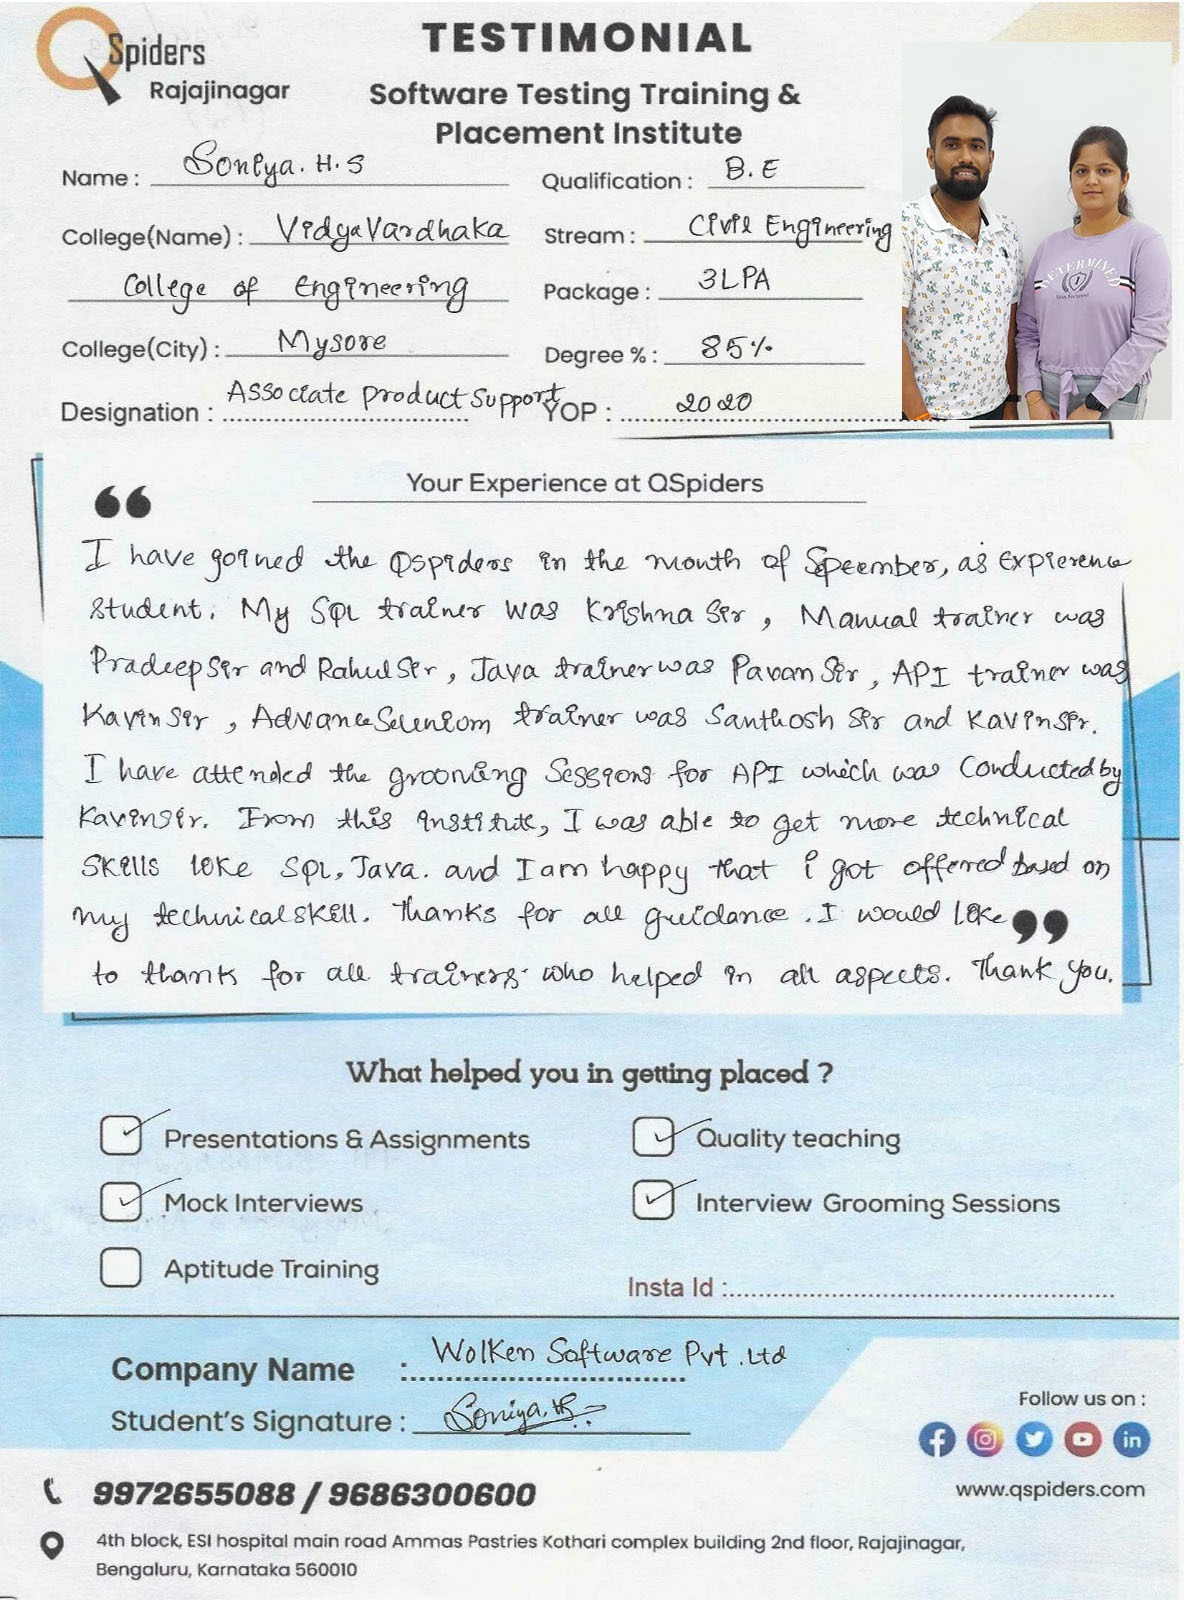 QSpiders
Rajajinagar
TESTIMONIAL
Software Testing Training &
Placement Institute
Name : Soniya. H.S
Qualification : B.E
College(Name) : VidyaVardhaka
Stream : Civil Engineering
College of Engineering
Package : 3LPA
College(City) : Mysore
Degree % : 85%
Designation : Associate product support
YOP : 2020
DETERMINED
Stay Focused
Your Experience at QSpiders
“
I have goined the Qspiders in the month of Speember, as Expierence
student. My SQL trainer was Krishna Sir, Manual trainer was
Pradeep Sir and Rahul Sir, Java trainer was Pavan Sir, API trainer was
Kavin Sir, Advance Selenium trainer was Santhosh Sir and Kavin Sir.
I have attended the grooming Sessions for API which was Conducted by
Kavin Sir. From this institute, I was able to get more technical
Skills like SQL, Java. and I am happy that i got offered based on
my technical skill. Thanks for all guidance. I would like ”
to thank for all trainers who helped in all aspects. Thank you.
What helped you in getting placed ?
Presentations & Assignments
Quality teaching
Mock Interviews
Interview Grooming Sessions
Aptitude Training
Insta Id :
Company Name : Wolken Software Pvt. Ltd
Student's Signature : Soniya. HS
Follow us on :
www.qspiders.com
9972655088 / 9686300600
4th block, ESI hospital main road Ammas Pastries Kothari complex building 2nd floor, Rajajinagar,
Bengaluru, Karnataka 560010